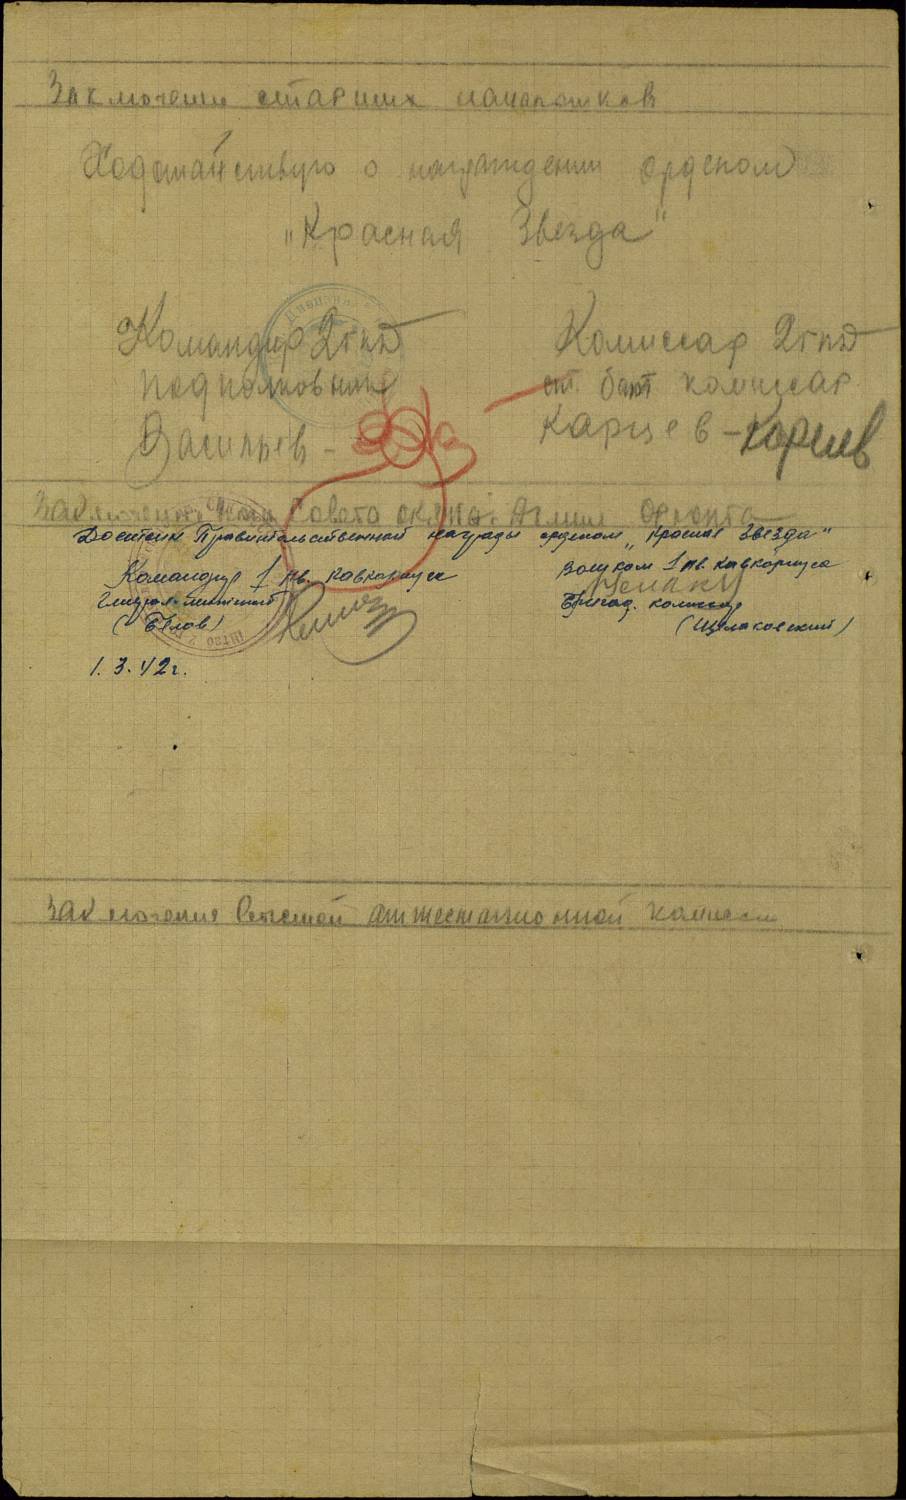 Заключение старших начальников
Ходатайствую о награждении орденом
"Красная Звезда"
Командир 2гкд
подполковник
Васильев -
Комиссар 2гкд
ст. бат комиссар
Карцев - Карцев
Заключение Совета Армии Фронта
Достоин Правительственной награды орденом "Красная Звезда"
Командир 1 гв. Кавкорпуса
Генерал-лейтенант
(Белов)
1.3.42г.
Военком 1 гв. кавкорпуса
Бригад. комиссар
(Щелаковский)
Заключение Высшей аттестационной комиссии